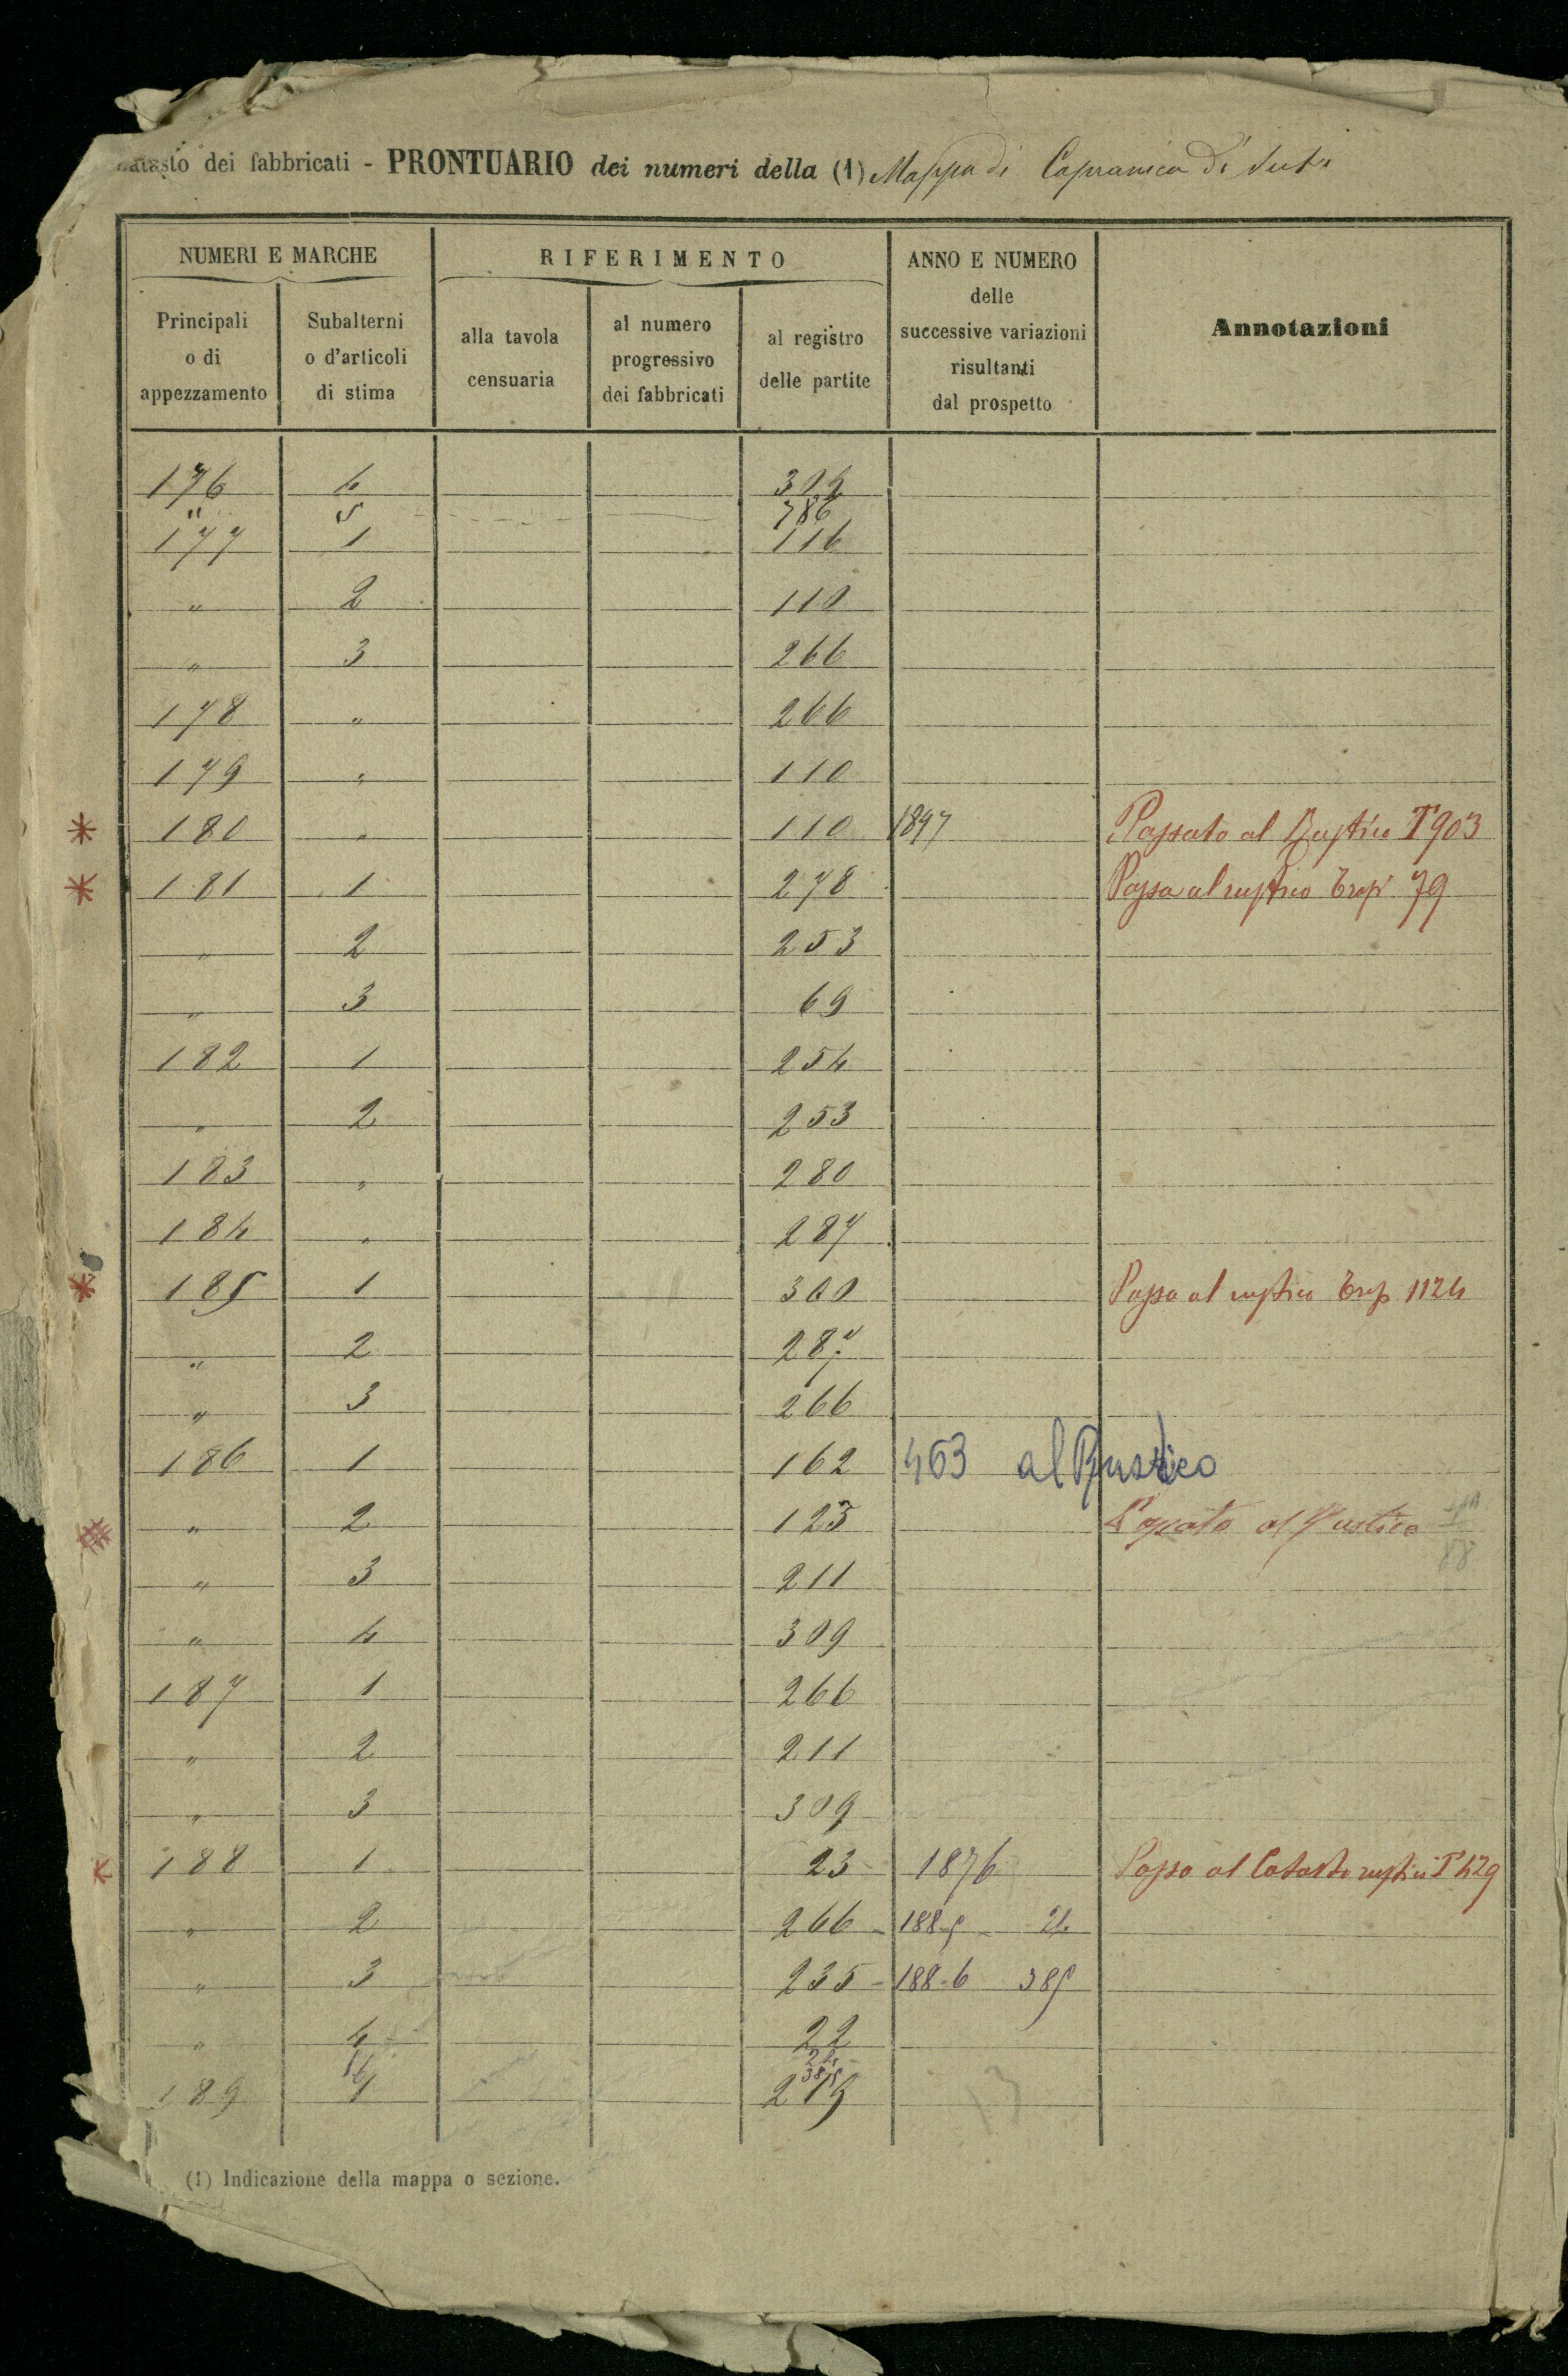 Catasto dei fabbricati - PRONTUARIO dei numeri della (1) Mappa di Capranica di Sutri
NUMERI E MARCHE
Principali o di appezzamento
Subalterni o d'articoli di stima
RIFERIMENTO
alla tavola censuaria
al numero progressivo dei fabbricati
al registro delle partite
ANNO E NUMERO delle successive variazioni risultanti dal prospetto
Annotazioni
176 4 309
" 5 786
177 1 116
" 2 110
" 3 266
178 " 266
179 " 110
* 180 " 110 1897 Passato al Rustico T 903
* 181 1 278 Passa al rustico 79
" 2 253
" 3 69
182 1 254
" 2 253
183 " 280
184 " 287
* 185 1 300 Passa al rustico 1124
" 2 287
" 3 266
186 1 162 463 al Rustico
" 2 123 Passato al Rustico
" 3 211
" 4 309
187 1 266
" 2 211
" 3 309
* 188 1 23 1876 Passa al Catasto rustico T 429
" 2 266 - 1885 - 24
" 3 235 - 1886 385
" 4 22
189 1
(1) Indicazione della mappa o sezione.